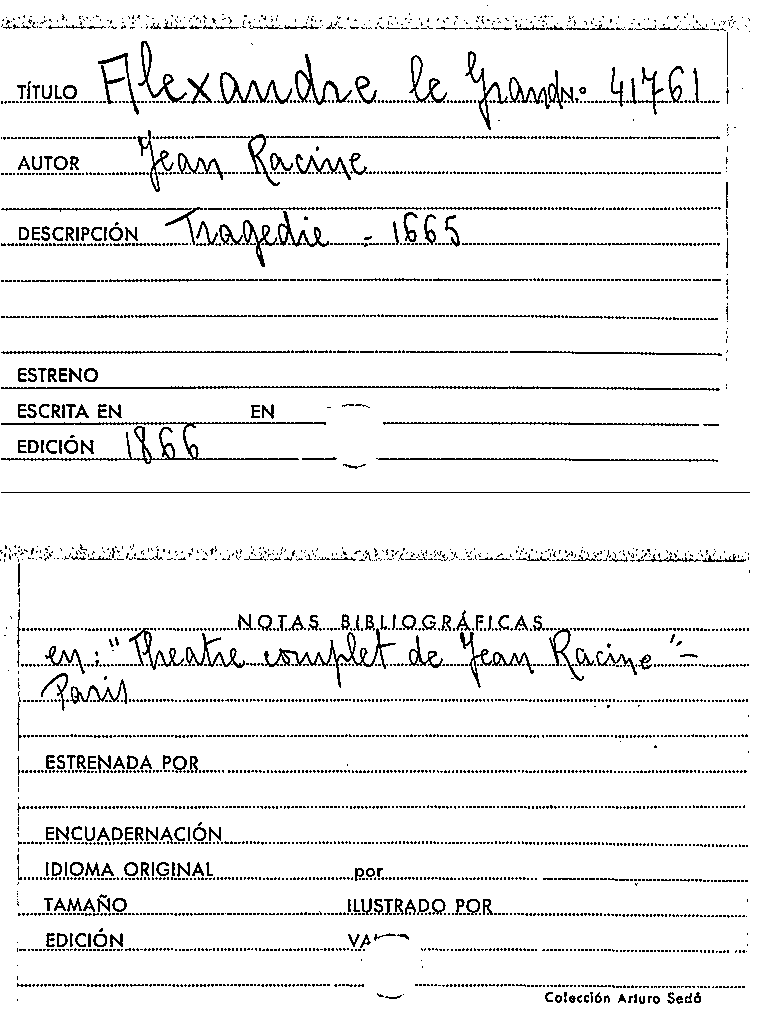 TÍTULO Alexandre le Grand N.º 41761
AUTOR Jean Racine
DESCRIPCIÓN Tragedie - 1665
ESTRENO
ESCRITA EN EN
EDICIÓN 1866
NOTAS BIBLIOGRÁFICAS
en: "Theatre complet de Jean Racine" -
Paris
ESTRENADA POR
ENCUADERNACIÓN
IDIOMA ORIGINAL por
TAMAÑO ILUSTRADO POR
EDICIÓN
Colección Arturo Sedó